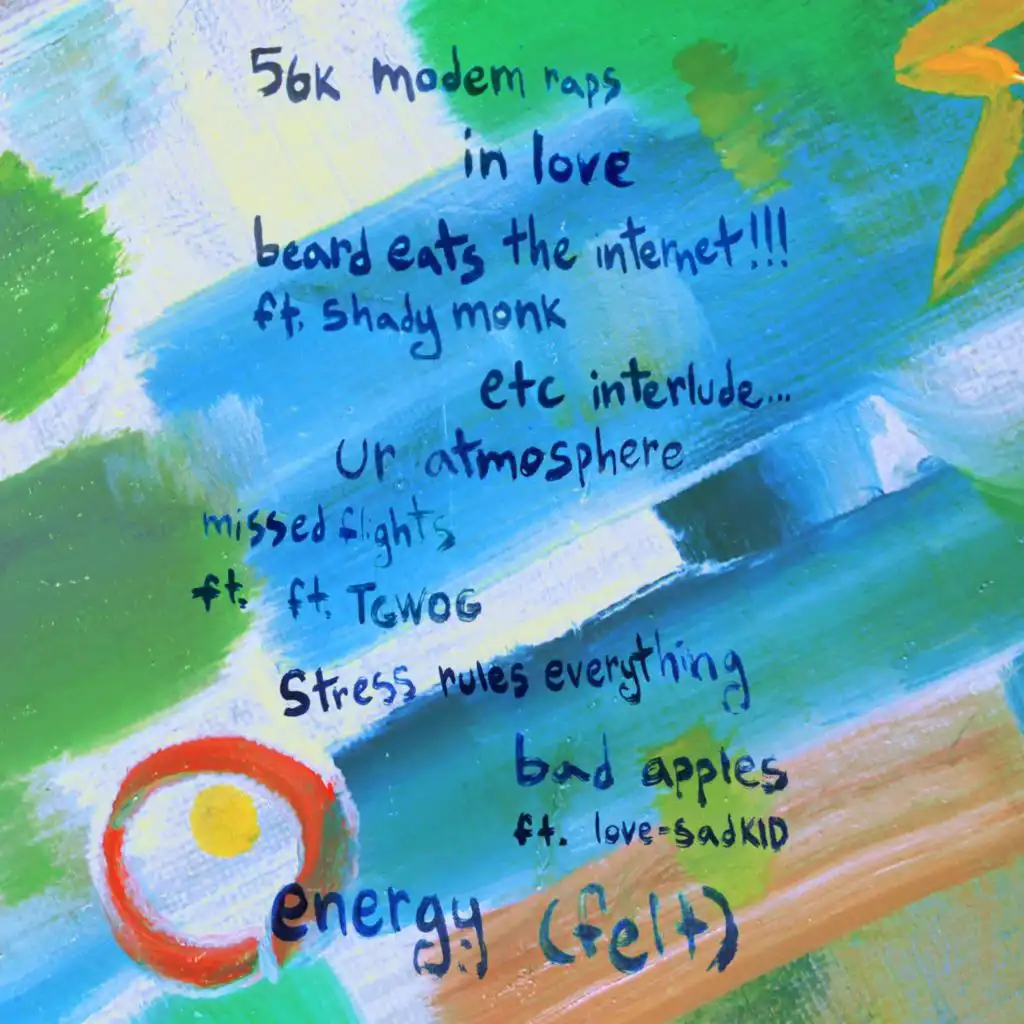 56k modem raps
in love
beard eats the internet!!!
ft. shady monk
etc interlude...
ur atmosphere
missed flights
ft. ft. TGWOG
Stress rules everything
bad apples
ft. love-sadKID
energy (felt)